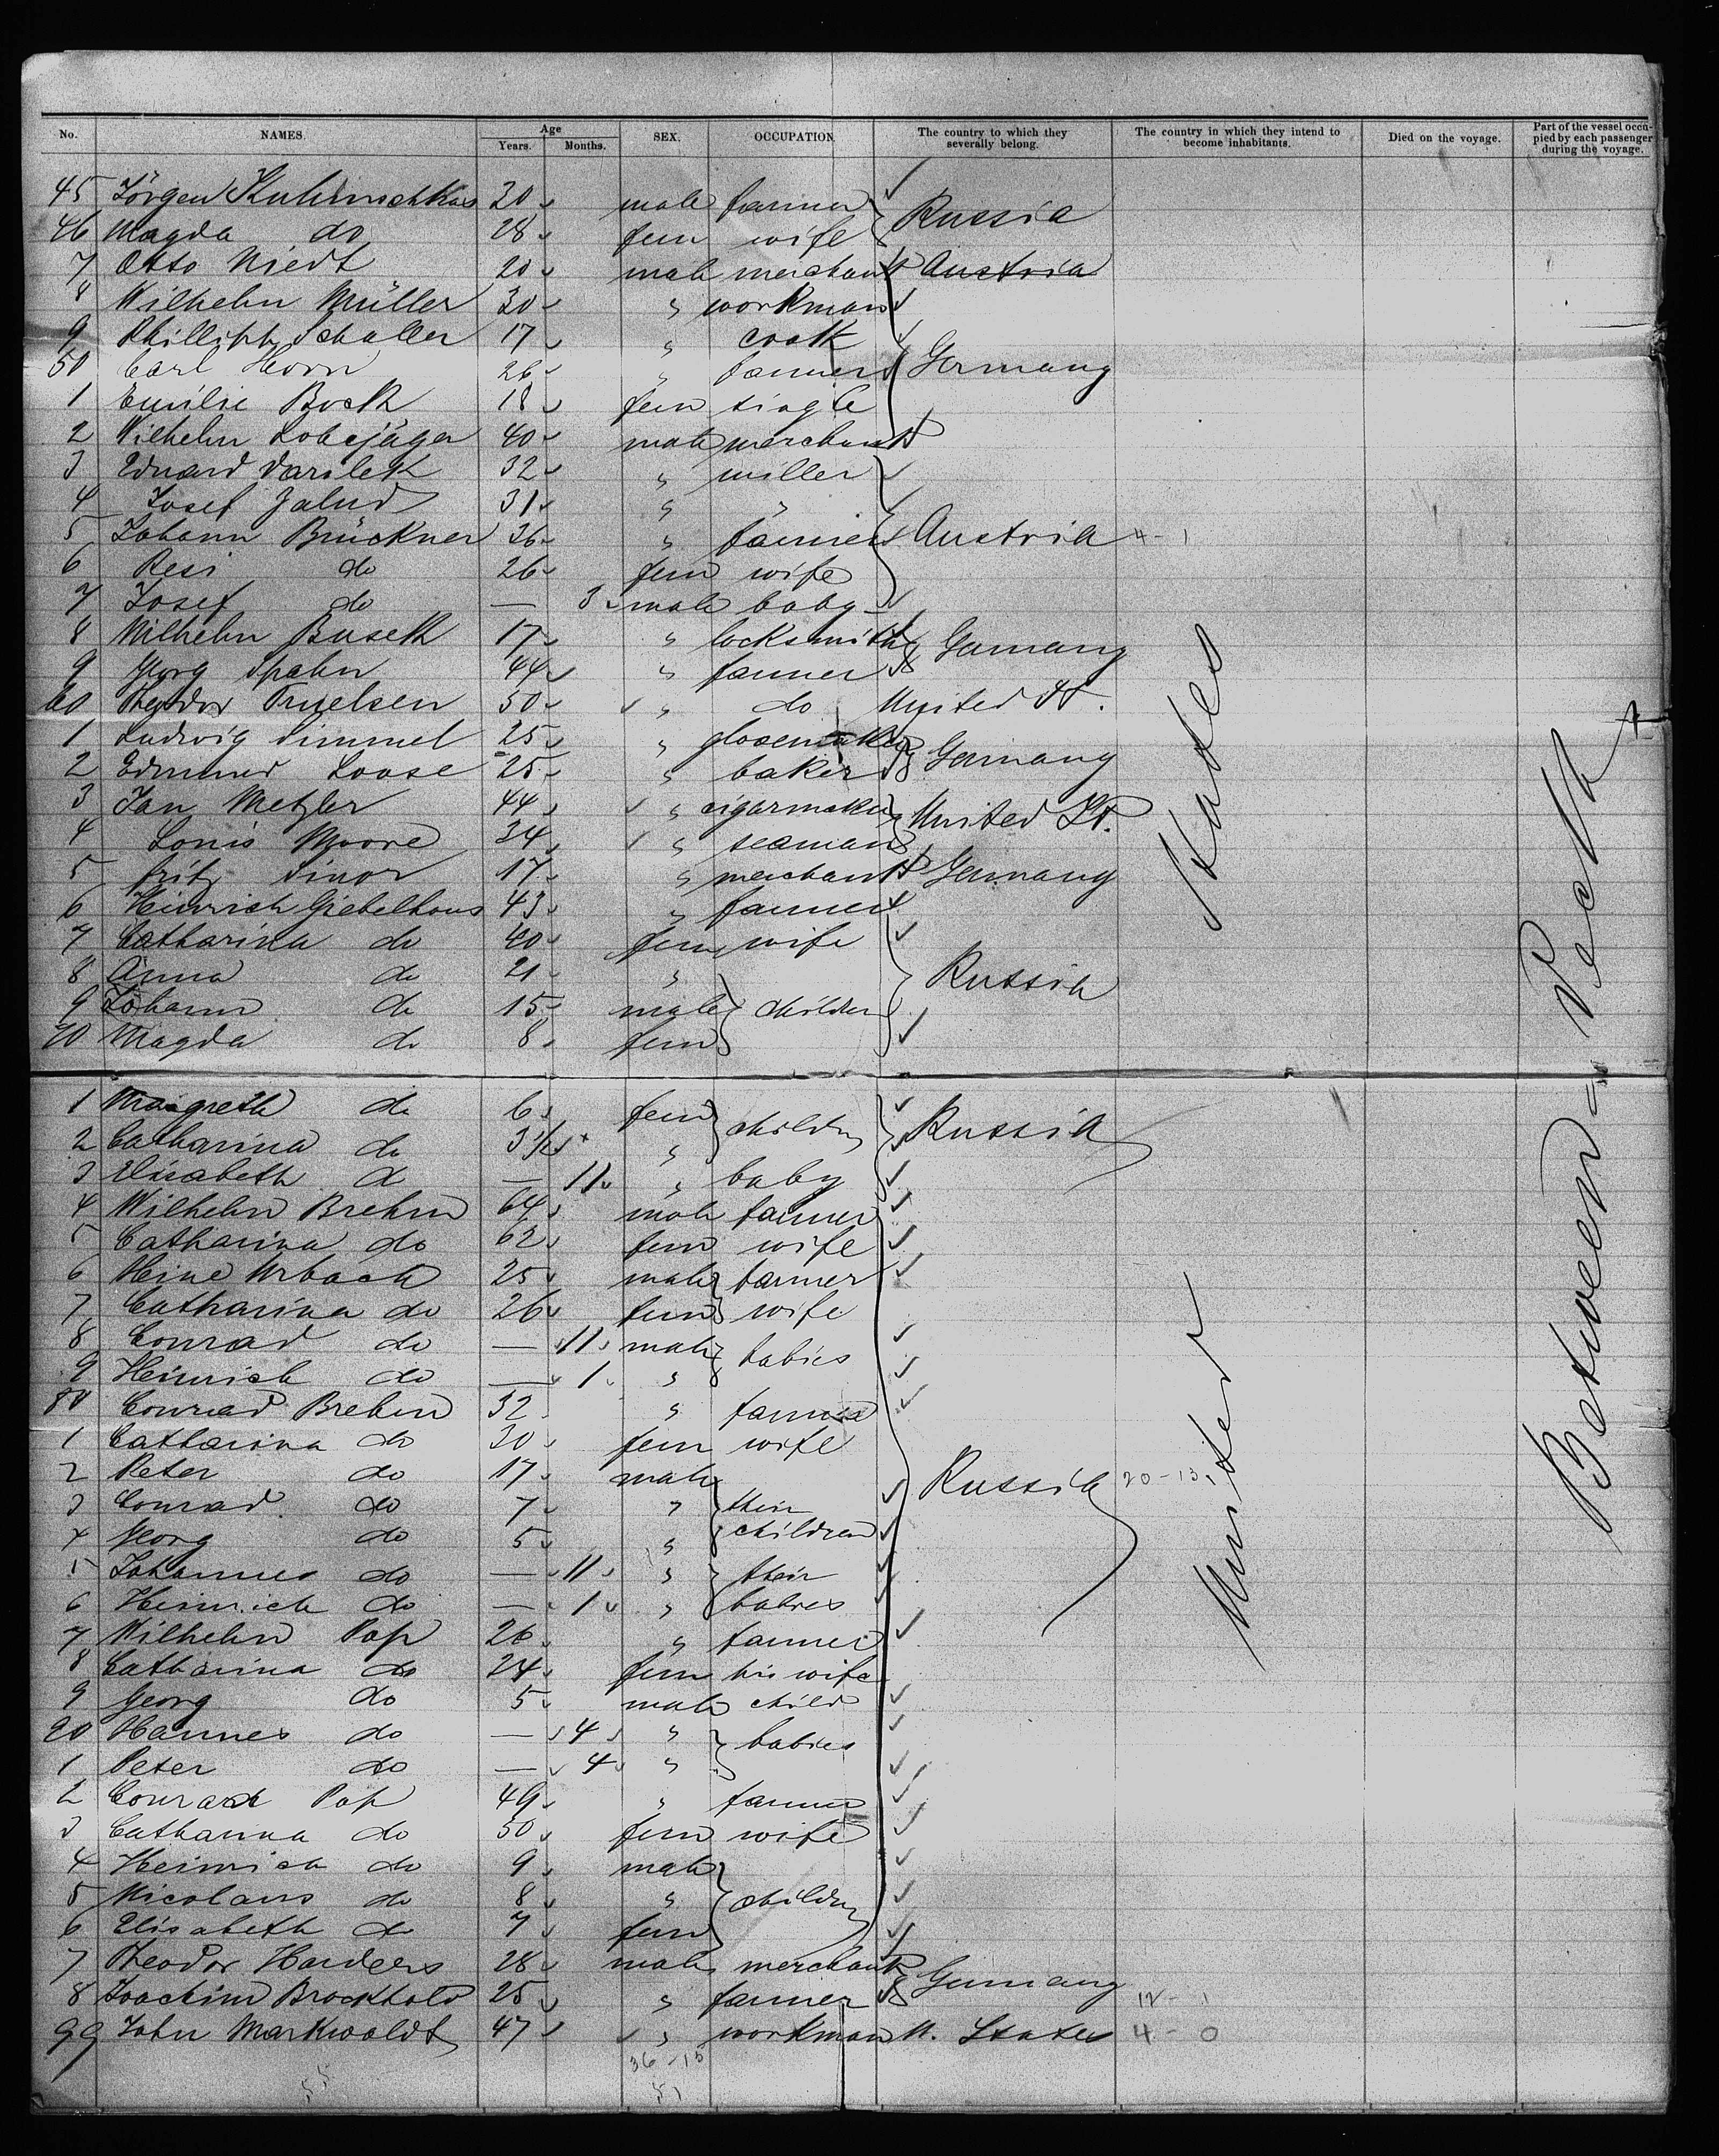 No. NAMES. Age Years. Months. SEX. OCCUPATION. The country to which they severally belong. The country in which they intend to become inhabitants. Died on the voyage. Part of the vessel occupied by each passenger during the voyage.
45 Jörgen 30 male farmer Russia
46 Magda do 28 fem wife
7 Otto Niedt 20 male merchant Austria
8 Wilhelm Müller 30 " workman
9 Phillipp Schaller 17 " cook
50 Carl Horn 26 " farmer Germany
1 Emilie Bock 18 fem single
2 Wilhelm Lobejäger 40 male merchant
3 Eduard Varilek 32 " miller
4 Josef Zalud 31 " "
5 Johann Brückner 36 " farmer Austria 4-1
6 Resi do 26 fem wife
7 Josef do — 3 male baby
8 Wilhelm Busek 17 " locksmith Germany
9 Georg Spahn 44 " farmer
60 Theodor Truelsen 50 " do United St.
1 Ludwig Simmel 25 " Germany
2 Edmund Loose 25 " baker
3 Jan Metzler 44 " cigarmaker United St.
4 Louis Moore 34 " seaman
5 Fritz Sinor 17 " merchant Germany
6 Heinrich Giebelhaus 43 " farmer
7 Catharina do 40 fem wife
8 Anna do 21 "
9 Johann do 15 male children Russia
70 Magda do 8 fem
1 Margreth do 6 fem children Russia
2 Catharina do 3½ "
3 Elisabeth d — 11 " baby
4 Wilhelm Brehm 64 male farmer
5 Catharina do 62 fem wife
6 Heine Urbach 25 male farmer
7 Catharina do 26 fem wife
8 Conrad do — 11 male babies
9 Heinrich do — 1 "
80 Conrad Brehm 32 " farmer
1 Catharina do 30 fem wife
2 Peter do 17 male Russia 20-13
3 Conrad do 7 " their
4 Georg do 5 " children
5 Johannes do — 11 " their
6 Heinrich do — 1 " babies
7 Wilhelm Pop 26 " farmer
8 Catharina do 24 fem his wife
9 Georg do 5 male child
90 Hannes do — 4 " babies
1 Peter do — 4 "
2 Conrad Pop 49 " farmer
3 Catharina do 50 fem wife
4 Heinrich do 9 male
5 Nicolaus do 8 " children
6 Elisabeth do 7 fem
7 Theodor Harders 28 male merchant Germany
8 Joachim Brockholt 25 " farmer 12-1
99 John Markwaldt 47 " workman U. States 4-0
36-15
55 51
United States
Between-Deck